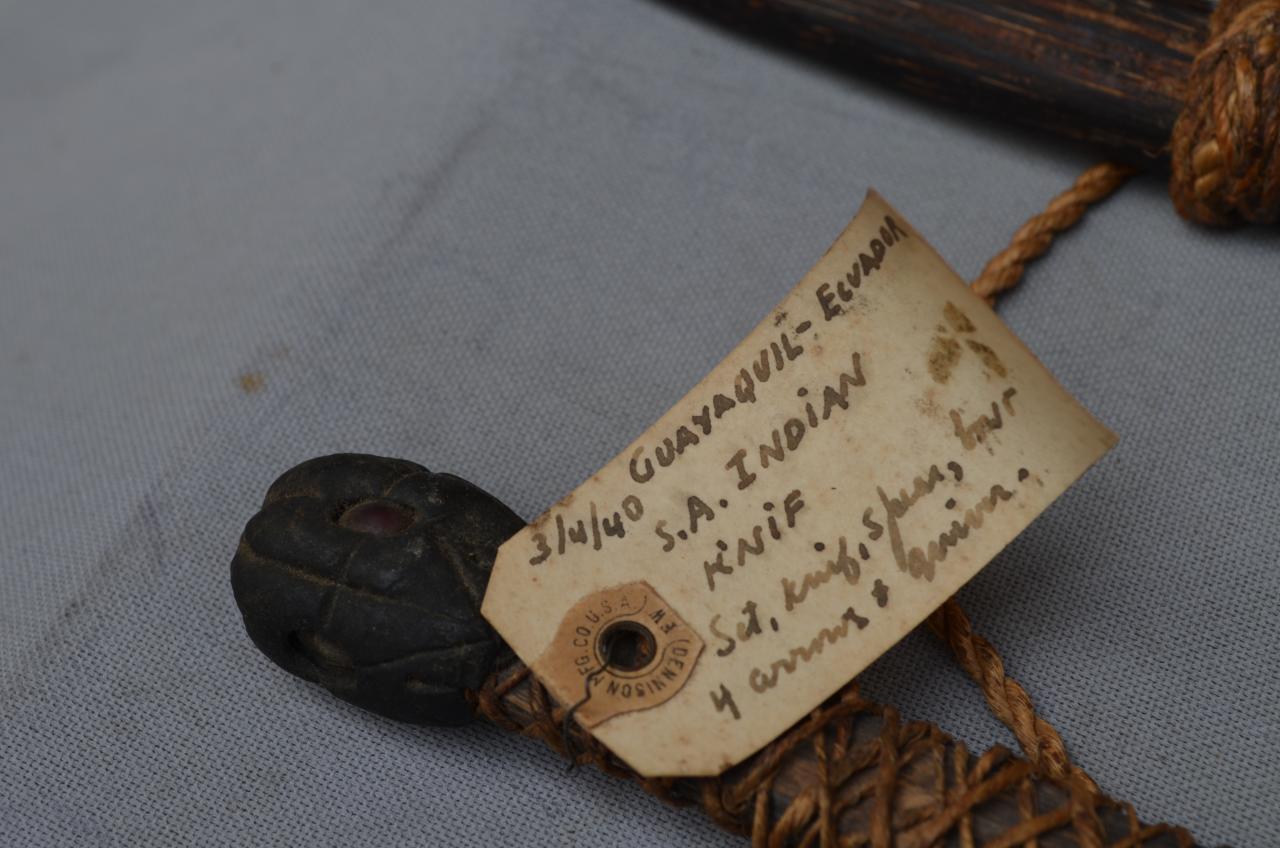 3/4/40 GUAYAQUIL - ECUADOR
S.A. INDIAN
KNIF
Set, knif, spear, bow
4 arrows & quiver.
DENNISON MFG. CO. U.S.A.